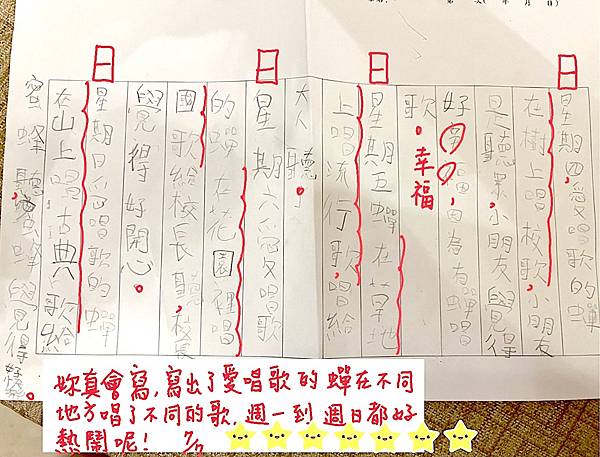 第 次( 年 月 日)
星期四,愛唱歌的蟬
在樹上唱校歌,小朋友
是聽眾,小朋友覺得
好福,因為有蟬唱
歌。
幸福
星期五蟬在草地
上唱流行歌,唱給
大人聽。
星期六愛唱歌
的蟬在花園裡唱
國歌給校長聽,校長
覺得好開心。
星期日愛唱歌的蟬
在山上唱古典歌給
蜜蜂聽,蜜蜂覺得好。
妳真會寫,寫出了愛唱歌的蟬在不同
地方唱了不同的歌,週一到週日都好
熱鬧呢!